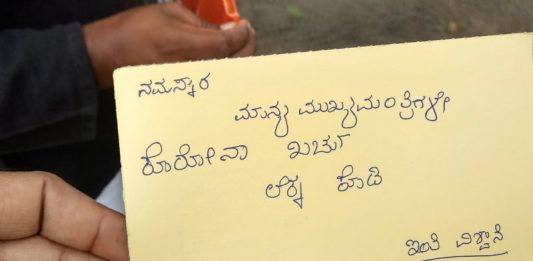 ನಮಸ್ಕಾರ
ಮಾನ್ಯ ಮುಖ್ಯಮಂತ್ರಿಗಳೇ
ಕೊರೋನಾ ಖರ್ಚು
ಲೆಕ್ಕ ಕೊಡಿ
ಇಂತಿ